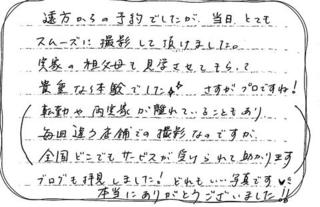 遠方からの予約でしたが、当日とても
スムーズに撮影して頂けました。
実家の祖父母も見学させてもらって
貴重な体験でした さすがプロですね!
転勤や両実家が離れていることもあり
毎回違う店舗での撮影なのですが、
全国どこでもサービスが受けられて助かります
ブログも拝見しました!どれもいい写真です♥
本当にありがとうございました!!